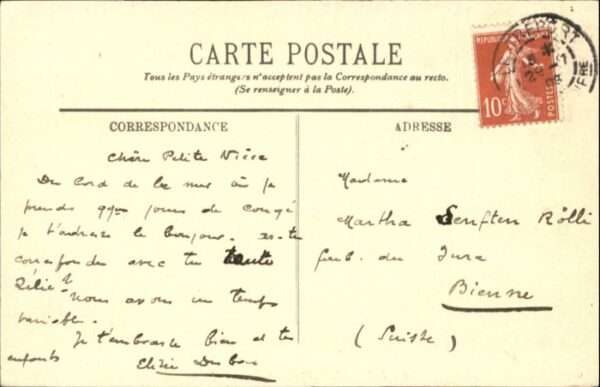 CARTE POSTALE
Tous les Pays étrangers n'acceptent pas la Correspondance au recto.
(Se renseigner à la Poste).
CORRESPONDANCE
ADRESSE
REPUBLIQUE
10c
POSTES
Chère Petite Nièce
Du bord de la mer où je
prends qqes jours de congé
je t'adresse le bonjour.
avec ta tante
nous avons un temps
variable.
Je t'embrasse bien et tes
enfants
Madame
Martha Senften Rölli
faub. du Jura
Bienne
(Suisse)